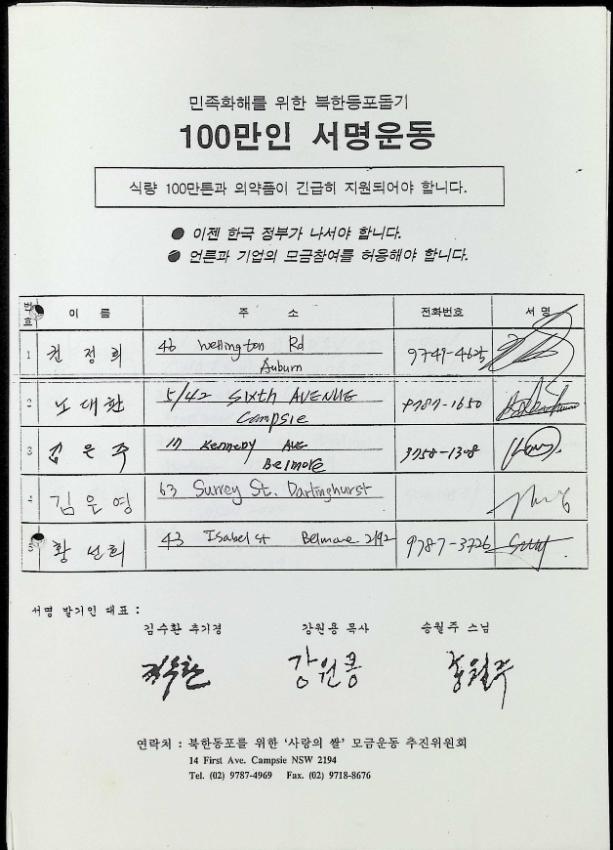 민족화해를 위한 북한동포돕기
100만인 서명운동
식량 100만톤과 의약품이 긴급히 지원되어야 합니다.
● 이젠 한국 정부가 나서야 합니다.
● 언론과 기업의 모금참여를 허용해야 합니다.
번호 이 름 주 소 전화번호 서 명
1 권 정 희 46 Wellington Rd Auburn 9749-4625
2 노 대 환 5/42 SIXTH AVENUE Campsie 9787-1650
3 김 은 주 17 Kennedy AVE Belmore 9758-1308
4 김 은 영 63 Surrey St. Darlinghurst
5 황 선 희 43 Isabel st Belmore 2192 9787-3726
서명 발기인 대표 :
김수환 추기경 강원용 목사 송월주 스님
김수환 강원용 송월주
연락처 : 북한동포를 위한 '사랑의 쌀' 모금운동 추진위원회
14 First Ave. Campsie NSW 2194
Tel. (02) 9787-4969 Fax. (02) 9718-8676